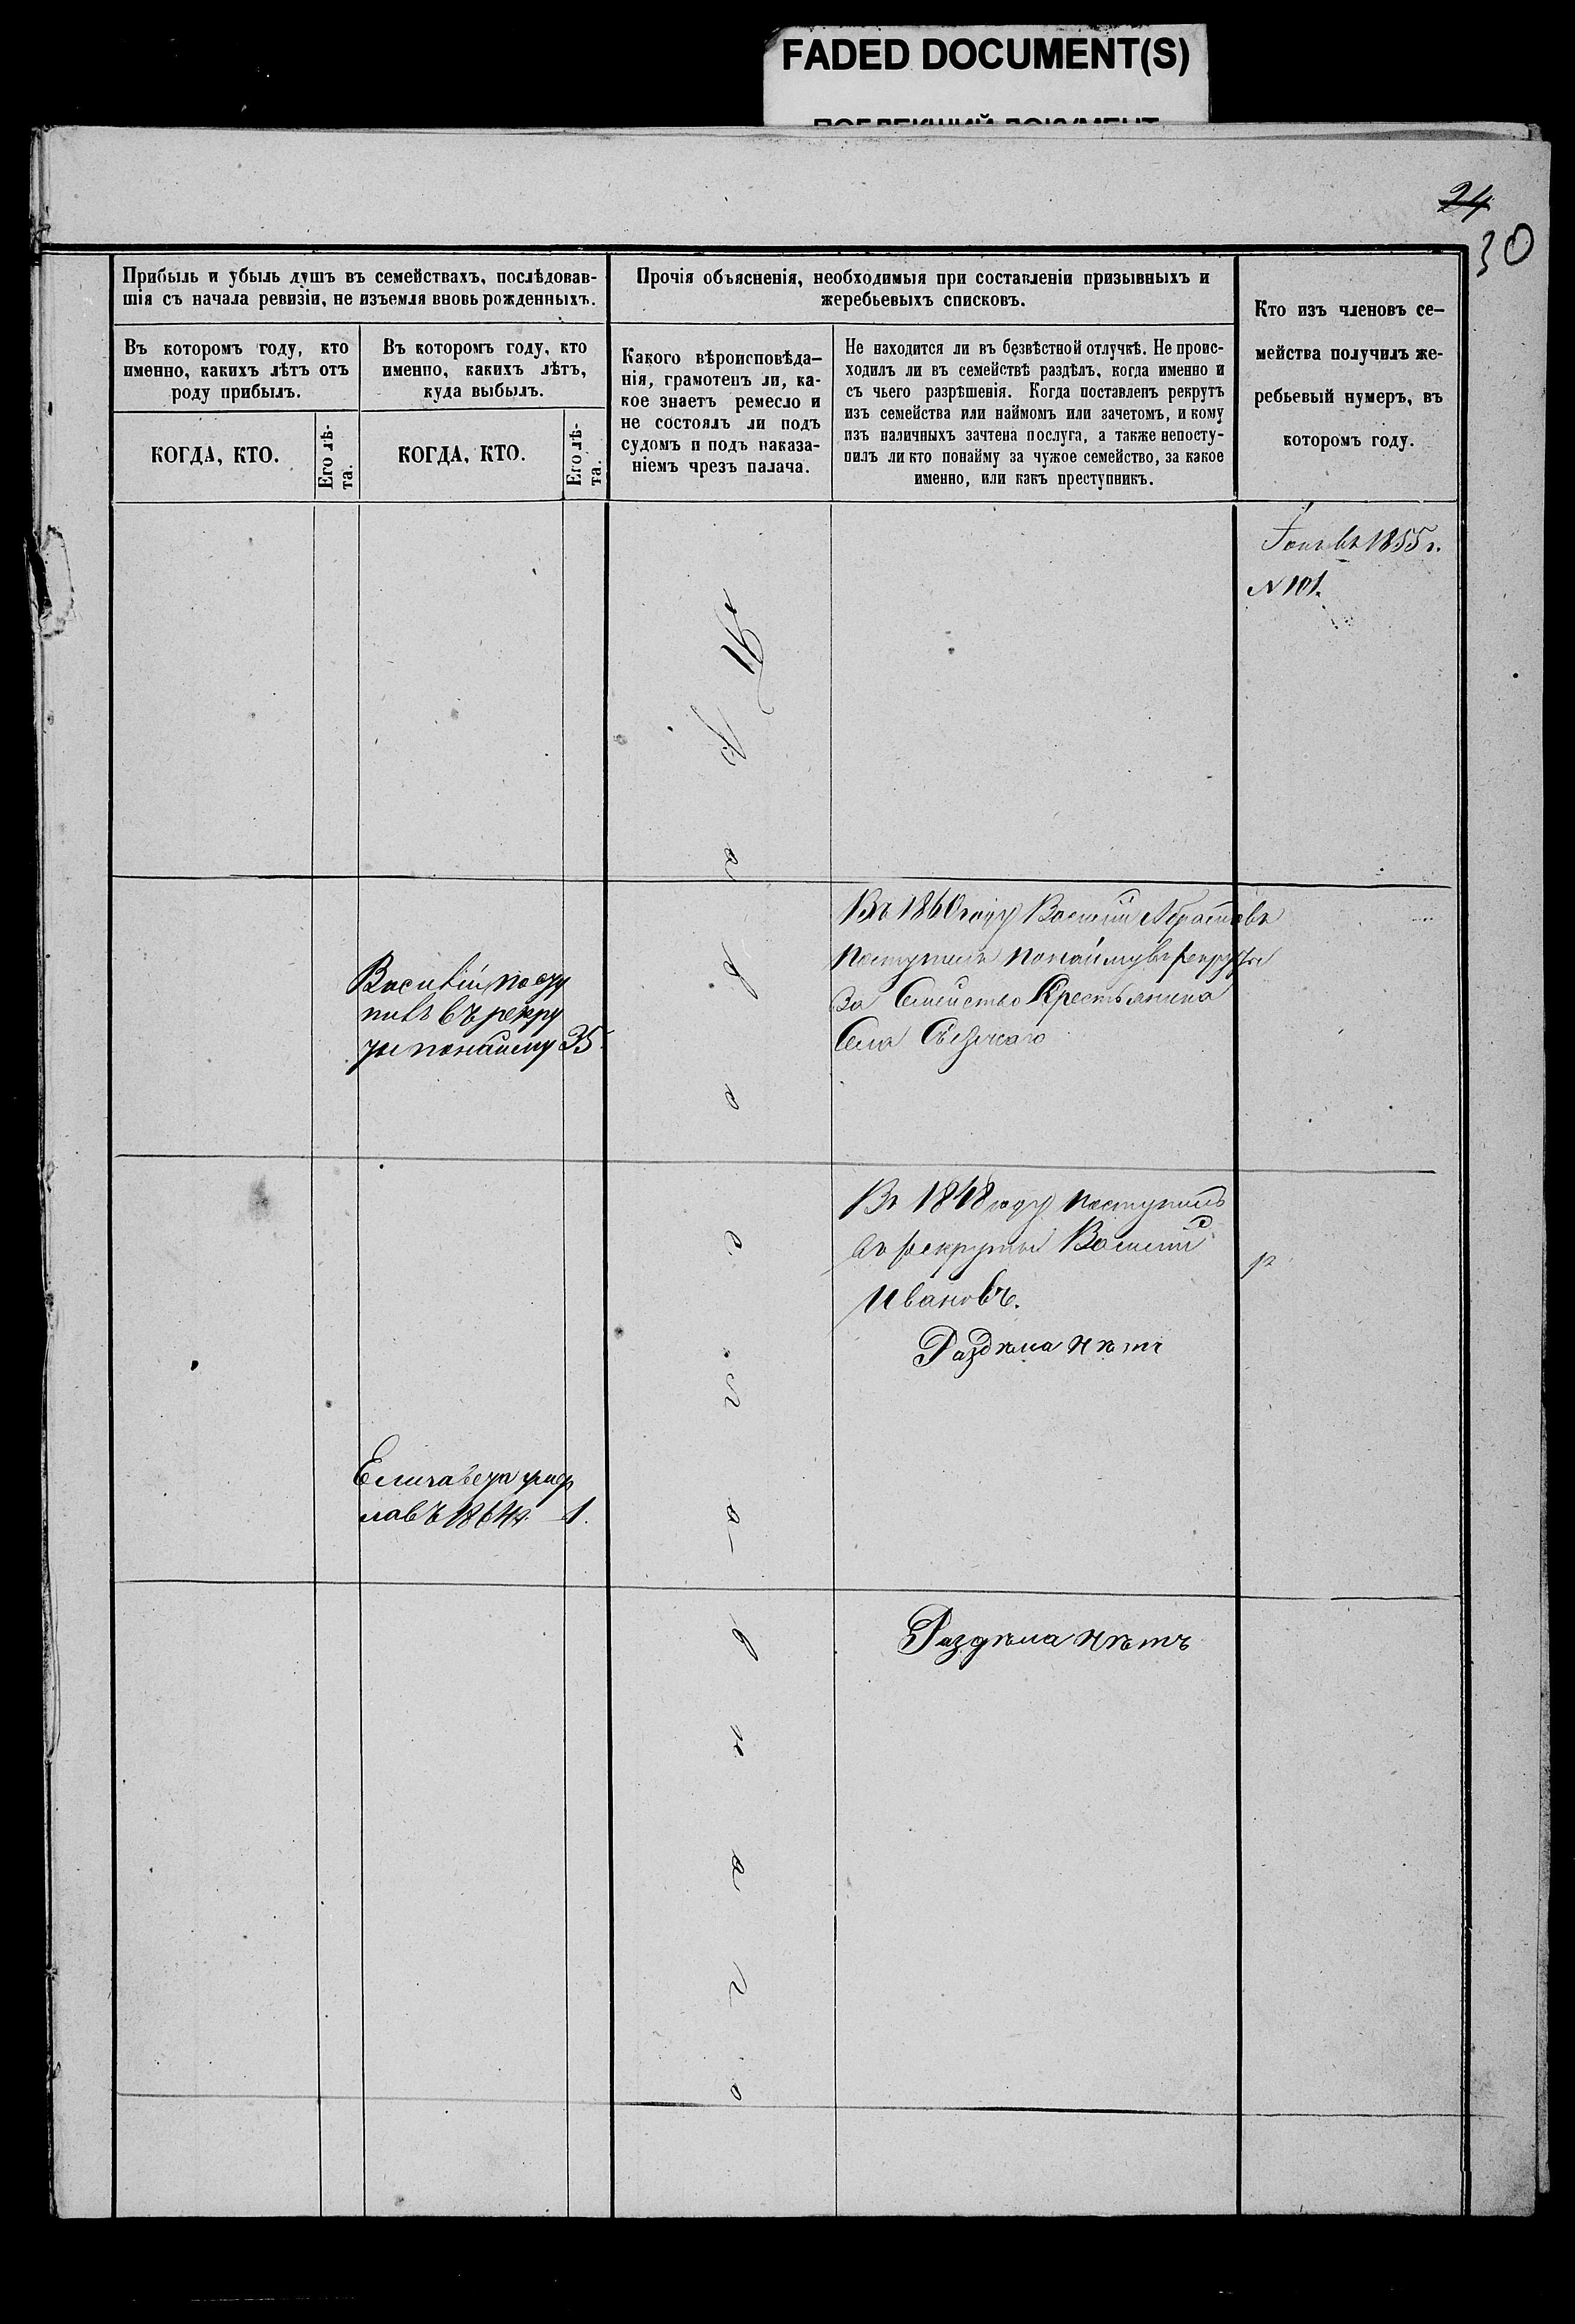 FADED DOCUMENT(S)
24
30
Прибыль и убыль душъ въ семействахъ, послѣдовав-
шія съ начала ревизіи, не изъемля вновь рожденныхъ.
Въ которомъ году, кто
именно, какихъ лѣтъ отъ
роду прибылъ.
Въ которомъ году, кто
именно, какихъ лѣтъ,
куда выбылъ.
КОГДА, КТО.
Его лѣ-
та.
КОГДА, КТО.
Его лѣ-
та.
Прочія объясненія, необходимыя при составленіи призывныхъ и
жеребьевыхъ списковъ.
Какого вѣроисповѣда-
нія, грамотенъ ли, ка-
кое знаетъ ремесло и
не состоялъ ли подъ
судомъ и подъ наказа-
ніемъ чрезъ палача.
Не находится ли въ безвѣстной отлучкѣ. Не проис-
ходилъ ли въ семействѣ раздѣлъ, когда именно и
съ чьего разрѣшенія. Когда поставленъ рекрутъ
изъ семейства или наймомъ или зачетомъ, и кому
изъ наличныхъ зачтена послуга, а также непосту-
пилъ ли кто понайму за чужое семейство, за какое
именно, или какъ преступникъ.
Кто изъ членовъ се-
мейства получилъ же-
ребьевый нумеръ, въ
которомъ году.
въ 1855 г.
N 101.
Православнаго
Василій посту
пилъ въ рекру
ты понайму 35
Въ 1860 году Василій
поступилъ понайму въ рекруты
за Семейство Крестьянина
Села
Въ 1848 году поступилъ
въ рекруты Василій
Ивановъ.
Раздѣла нѣтъ
Елизавета умер
ла въ 1864 г. 1.
Раздѣла нѣтъ